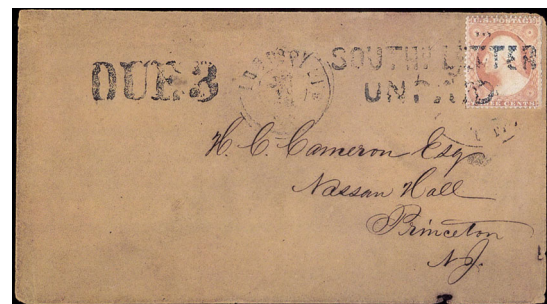 DUE 3
SOUTHN LETTER
UNPAID
H. C. Cameron Esq
Nassau Hall
Princeton
N.J.